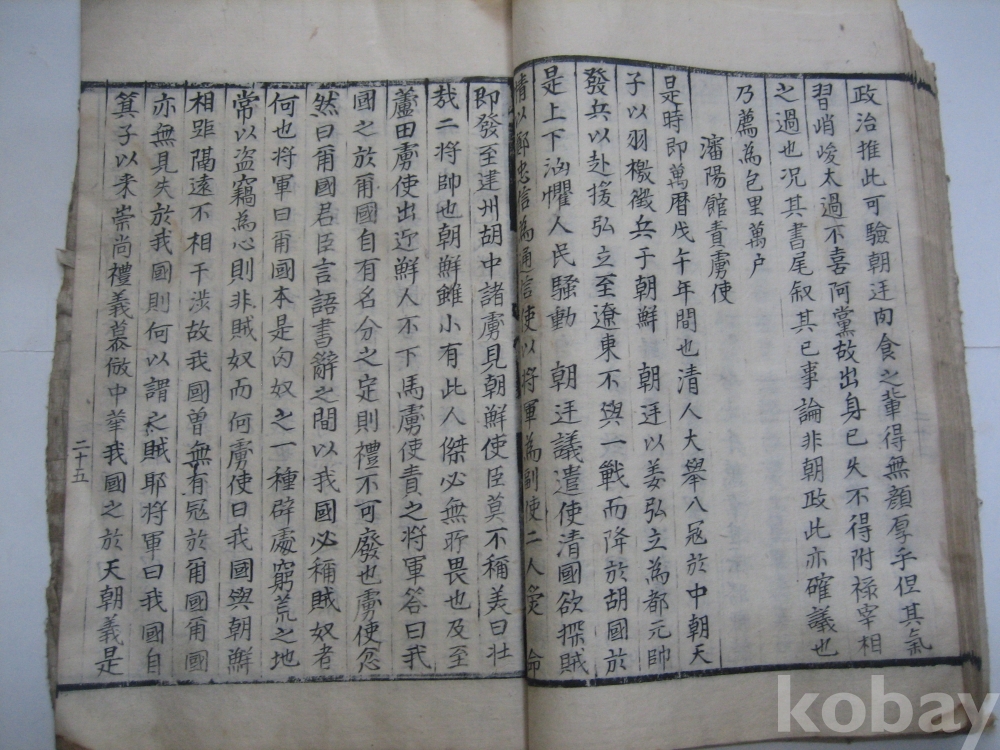 政治推此可驗朝廷肉食之輩得無顔厚乎但其氣
習峭峻太過不喜阿黨故出身已久不得附祿宰相
之過也况其書尾叙其已事論非朝政此亦確議也
乃薦為包里萬户
瀋陽館責虜使
是時即萬曆戊午年間也清人大舉入冦於中朝天
子以羽檄徵兵于朝鮮 朝廷以姜弘立為都元帥
發兵以赴援弘立至遼東不與一戰而降於胡國於
是上下汹懼人民騷動 朝廷議遣使清國欲探賊
情以鄭忠信為通信使以將軍為副使二人受 命
即發至建州胡中諸虜見朝鮮使臣莫不稱美曰壯
哉二將帥也朝鮮雖小有此人傑必無所畏也及至
蘆田虜使出迎鮮人不下馬虜使責之將軍答曰我
國之於爾國自有名分之定則禮不可廢也虜使忿
然曰爾國君臣言語書辭之間以我國必稱賊奴者
何也將軍曰爾國本是匈奴之一種辟處窮荒之地
常以盜竊為心則非賊奴而何虜使曰我國與朝鮮
相距隔遠不相干涉故我國曾無有冦於爾國爾國
亦無見失於我國則何以謂之賊耶將軍曰我國自
箕子以来崇尚禮義慕倣中華我國之於天朝義是
二十五
kobay